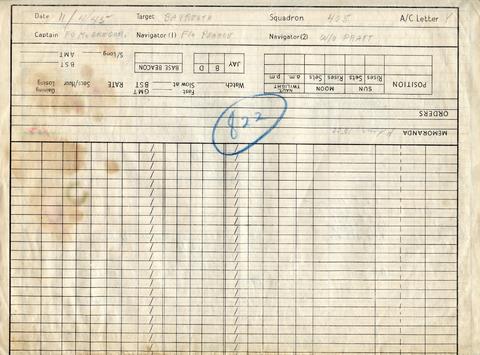 Date 11/4/45 Target BAYREUTH Squadron 405 A/C Letter
Captain F/O McGregor. Navigator (1) F/O Navigator (2) W/O PRATT
S/Long AMT
BST
BASE BEACON
JAY
B D
Gaining Losing Secs/hour RATE
BST GMT
Fast Slow at
Watch
NAUT. TWILIGHT MOON SUN POSITION
p.m. a.m. Sets Rises Sets Rises
ORDERS
822
MEMORANDA